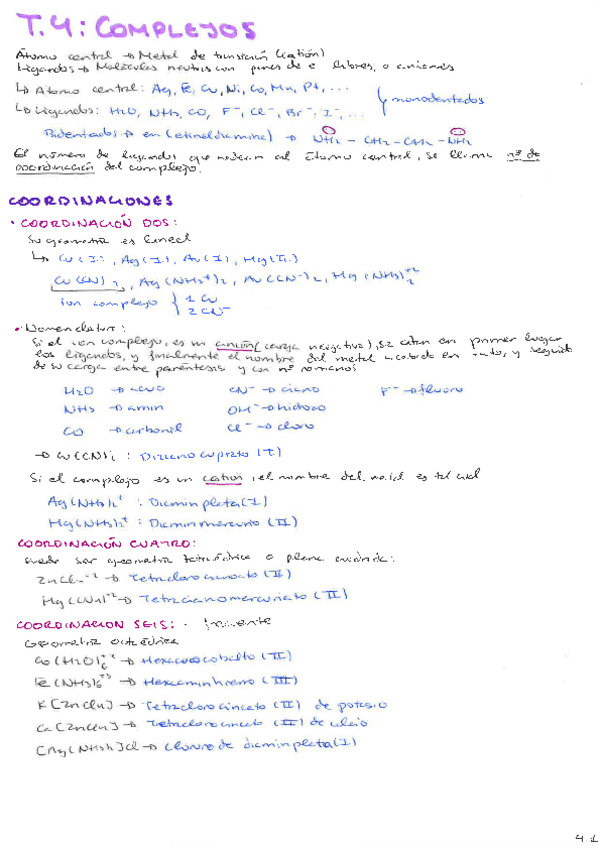 T.4: COMPLEJOS
Átomo central → Metal de transición (catión)
Ligandos → Moléculas neutras con pares de e⁻ libres, o aniones
↳ Átomo central: Ag, Fe, Cu, Ni, Co, Mn, Pt, ...
↳ Ligandos: H2O, NH3, CO, F⁻, Cl⁻, Br⁻, I⁻, ... } monodentados
Bidentados → en (etineldiamina) → NH2 - CH2 - CH2 - NH2
El número de ligandos que rodean al átomo central, se llama nº de
coordinación del complejo.
COORDINACIONES
· COORDINACIÓN DOS:
Su geometría es lineal
↳ Cu(I), Ag(I), Au(I), Hg(II)
Cu(CN)2, Ag(NH3⁺)2, Au(CN⁻)2, Hg(NH3)2⁺²
ion complejo { 1 Cu
2 CN⁻
· Nomenclatura:
Si el ion complejo, es un anión (carga negativa), se citan en primer lugar
los ligandos, y finalmente el nombre del metal acabado en -ato, y seguido
de su carga entre paréntesis y con nº romanos
H2O → acuo CN⁻ → ciano F⁻ → fluoro
NH3 → amin OH⁻ → hidroxo
CO → carbonil Cl⁻ → cloro
→ Cu(CN)2⁻ : Diciano cuprato (I)
Si el complejo es un catión, el nombre del metal es tal cual
Ag(NH3)2⁺ : Diaminplata(I)
Hg(NH3)2⁺ : Diaminmercurio (II)
COORDINACIÓN CUATRO:
Puede ser geometría tetraédrica o plano cuadrada:
ZnCl4⁻² → Tetraclorocincato (II)
Hg(CN)4⁻² → Tetracianomercuriato (II)
COORDINACION SEIS: · frecuente
Geometría octaédrica
Co(H2O)6⁺² → Hexacuocobalto (II)
Fe(NH3)6⁺³ → Hexaminhierro (III)
K[ZnCl4] → Tetraclorocincato (II) de potasio
Ca[ZnCl4] → Tetraclorocincato (II) de calcio
[Ag(NH3)2]Cl → Cloruro de diaminplata(I)
4.1